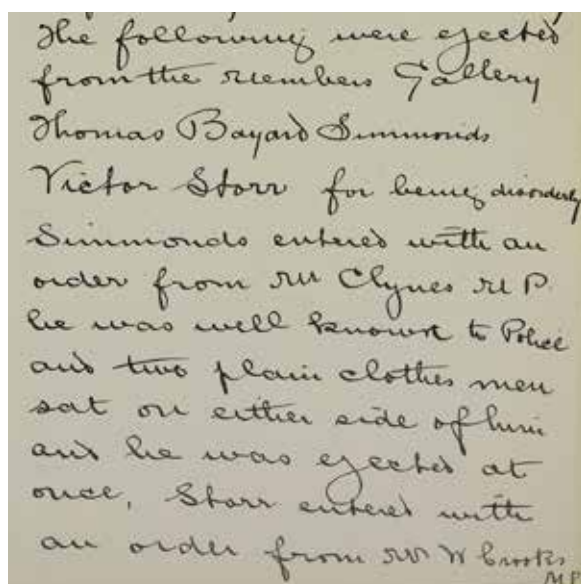 The following were ejected
from the Members Gallery
Thomas Bayard Simmonds
Victor Storr for being disorderly
Simmonds entered with an
order from Mr Clynes M P.
he was well known to Police
and two plain clothes men
sat on either side of him
and he was ejected at
once, Storr entered with
an order from Mr W Crooks
M P